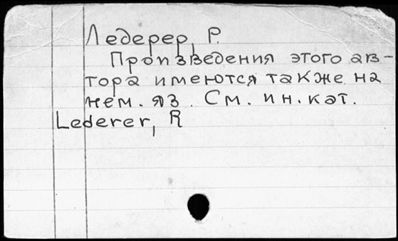 Ледерер, Р.
Произведения этого ав-
тора имеются также на
нем. яз. См. ин. кат.
Lederer, R